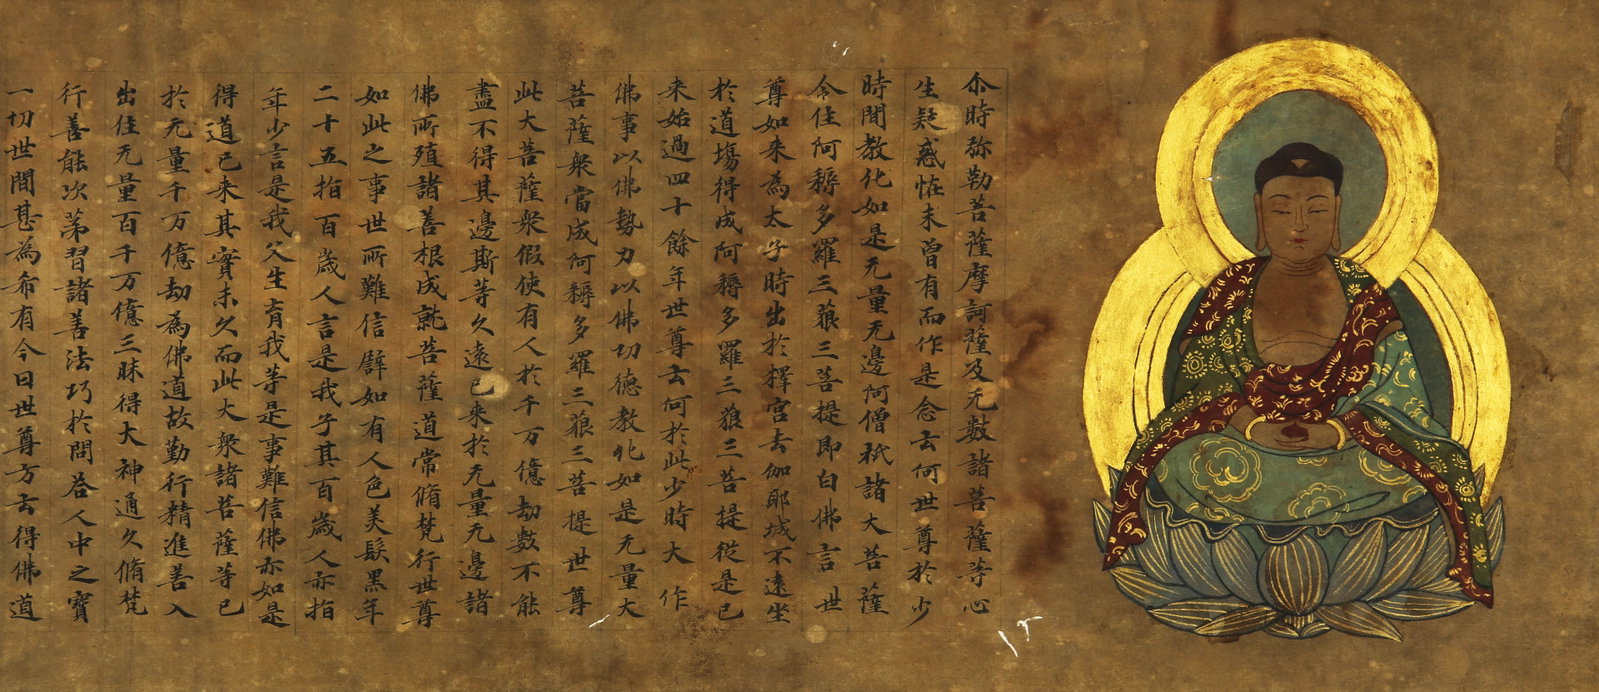 尒時弥勒菩薩摩訶薩及无數諸菩薩等心
生疑惑恠未曽有而作是念云何世尊於少
時間教化如是无量无邊阿僧祇諸大菩薩
令住阿耨多羅三藐三菩提即白佛言世
尊如来為太子時出於釋宮去伽耶城不遠坐
於道場得成阿耨多羅三藐三菩提從是已
来始過四十餘年世尊云何於此少時大作
佛事以佛勢力以佛切德教化如是无量大
菩薩衆當成阿耨多羅三藐三菩提世尊
此大菩薩衆假使有人於千万億劫數不能
盡不得其邊斯等久遠已来於无量无邊諸
佛所殖諸善根成就菩薩道常脩梵行世尊
如此之事世所難信譬如有人色美髮黑年
二十五指百歲人言是我子其百歲人亦指
年少言是我父生育我等是事難信佛亦如是
得道已来其實未久而此大衆諸菩薩等已
於无量千万億劫為佛道故勤行精進善入
出住无量百千万億三昧得大神通久脩梵
行善能次第習諸善法巧於問荅人中之寶
一切世間甚為希有今日世尊方云得佛道